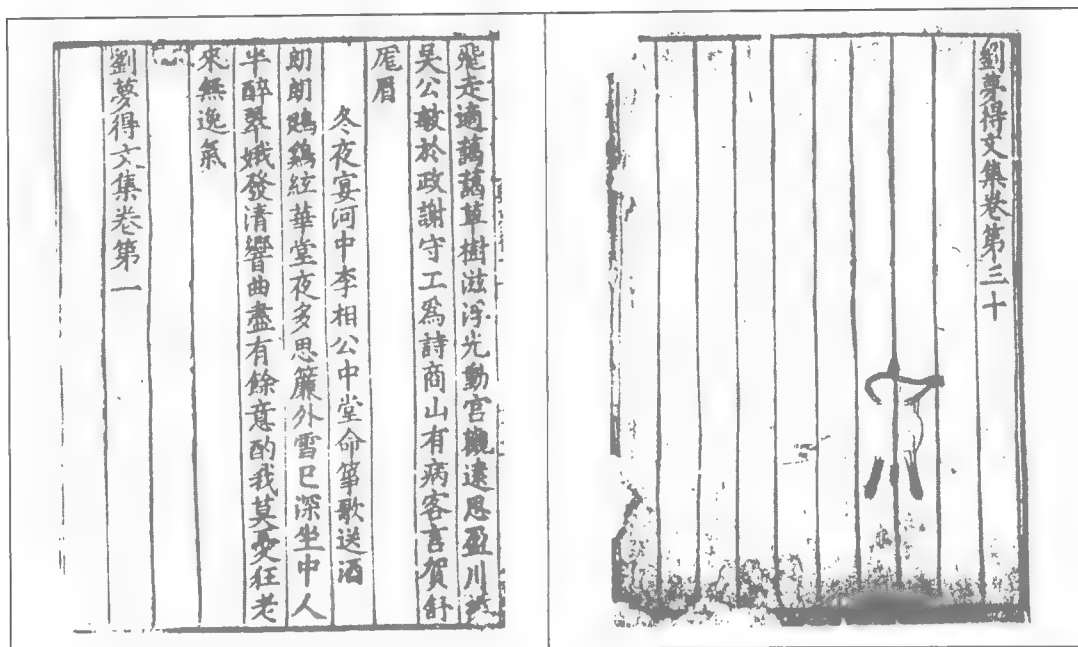 劉夢得文集卷第三十
飛走適藹藹草樹滋浮光動宮觀遠思盈川
吳公敏於政謝守工爲詩商山有病客言賀舒
厖眉
冬夜宴河中李相公中堂命箏歌送酒
朗朗鵾鷄絃華堂夜多思簾外雪巳深坐中人
半醉翠娥發清響曲盡有餘意酌我莫憂狂老
來無逸氣
劉夢得文集卷第一